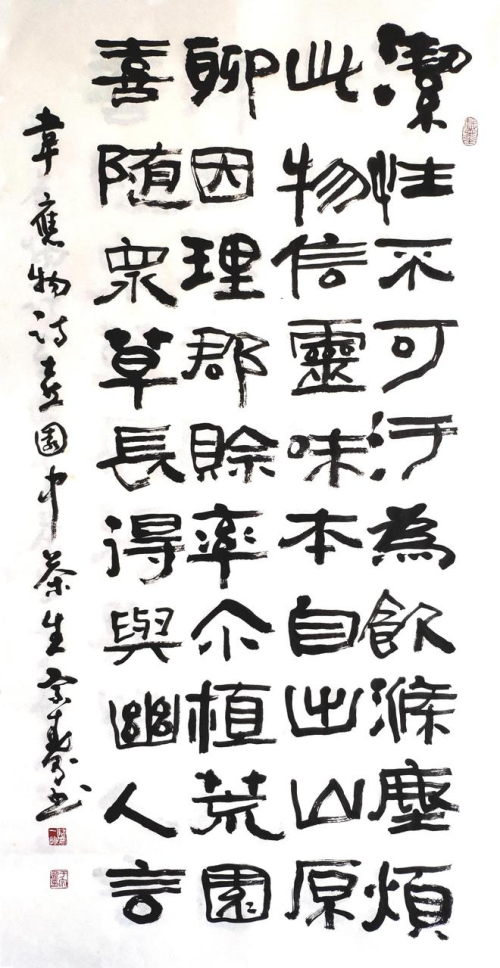 潔性不可汙為飲滌塵煩
此物信靈味本自出山原
聊因理郡賖率尒植荒園
喜随眾草長得與幽人言
韋應物詩喜園中茶生書